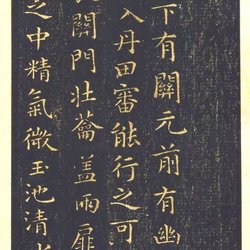 下有關元前有幽
入丹田審能行之可
關門壯籥盖兩扉
之中精氣微玉池清